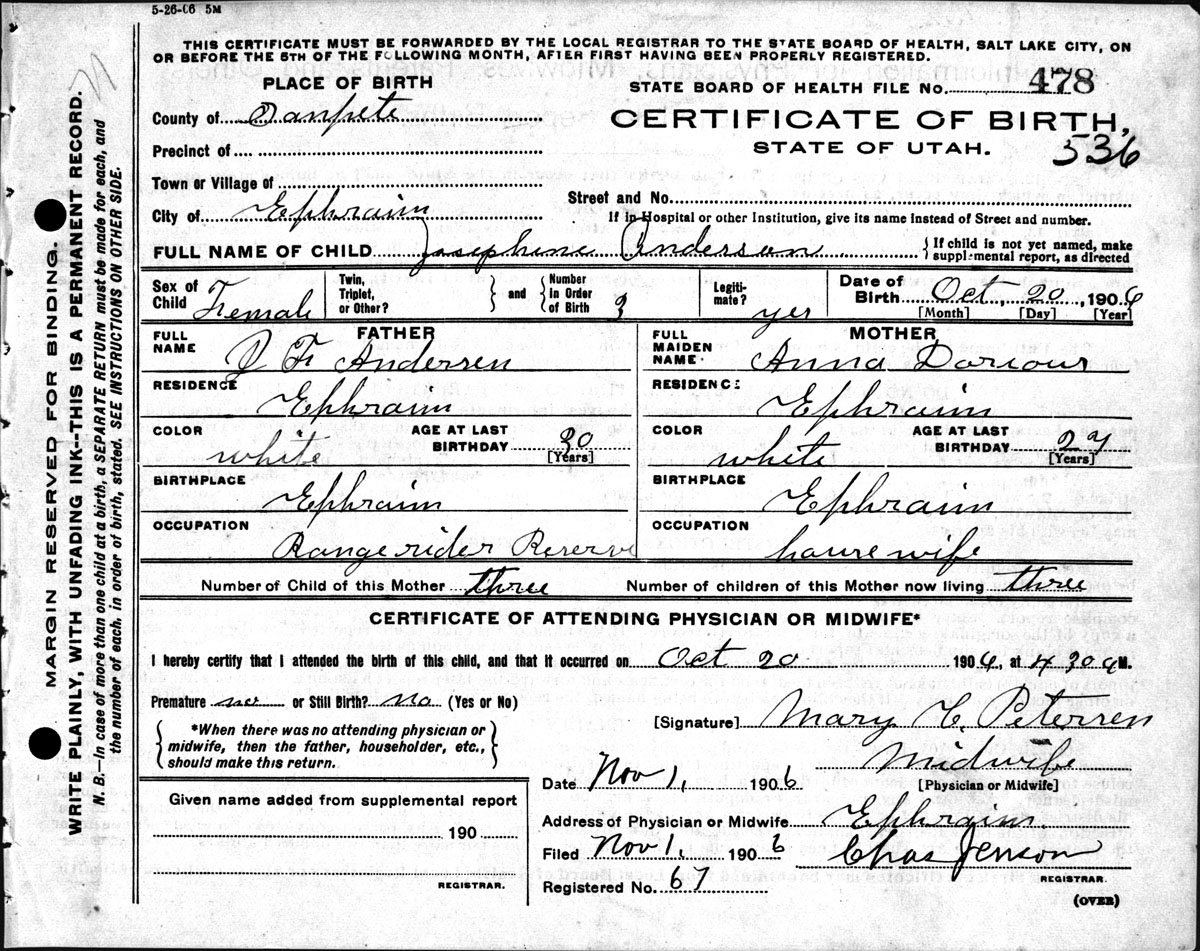 5-26-06 5M
THIS CERTIFICATE MUST BE FORWARDED BY THE LOCAL REGISTRAR TO THE STATE BOARD OF HEALTH, SALT LAKE CITY, ON
OR BEFORE THE 5TH OF THE FOLLOWING MONTH, AFTER FIRST HAVING BEEN PROPERLY REGISTERED.
PLACE OF BIRTH
STATE BOARD OF HEALTH FILE No. 478
County of Sanpete
CERTIFICATE OF BIRTH,
STATE OF UTAH. 536
Precinct of
Town or Village of
Street and No.
City of Ephraim
If in Hospital or other Institution, give its name instead of Street and number.
FULL NAME OF CHILD Josephine Anderson { If child is not yet named, make supplemental report, as directed
Sex of Child Female Twin, Triplet, or Other? } and { Number In Order of Birth 3 Legitimate? yes Date of Birth Oct, 20, 1906 [Month] [Day] [Year]
FATHER MOTHER
FULL NAME J F Andersen FULL MAIDEN NAME Anna Dorious
RESIDENCE Ephraim RESIDENCE Ephraim
COLOR white AGE AT LAST BIRTHDAY 30 [Years] COLOR white AGE AT LAST BIRTHDAY 27 [Years]
BIRTHPLACE Ephraim BIRTHPLACE Ephraim
OCCUPATION Range rider Reserve OCCUPATION house wife
Number of Child of this Mother three Number of children of this Mother now living three
CERTIFICATE OF ATTENDING PHYSICIAN OR MIDWIFE*
I hereby certify that I attended the birth of this child, and that it occurred on Oct 20 1906, at 4 30 a M.
Premature no or Still Birth? no (Yes or No)
[Signature] Mary C. Petersen
{ *When there was no attending physician or midwife, then the father, householder, etc., should make this return. }
Midwife
[Physician or Midwife]
Date Nov 1, 1906
Given name added from supplemental report
190
REGISTRAR.
Address of Physician or Midwife Ephraim.
Filed Nov 1, 1906 Chas Jenson
REGISTRAR.
Registered No. 67
(OVER)
MARGIN RESERVED FOR BINDING.
WRITE PLAINLY, WITH UNFADING INK--THIS IS A PERMANENT RECORD.
N. B.—In case of more than one child at a birth, a SEPARATE RETURN must be made for each, and
the number of each, in order of birth, stated. SEE INSTRUCTIONS ON OTHER SIDE.